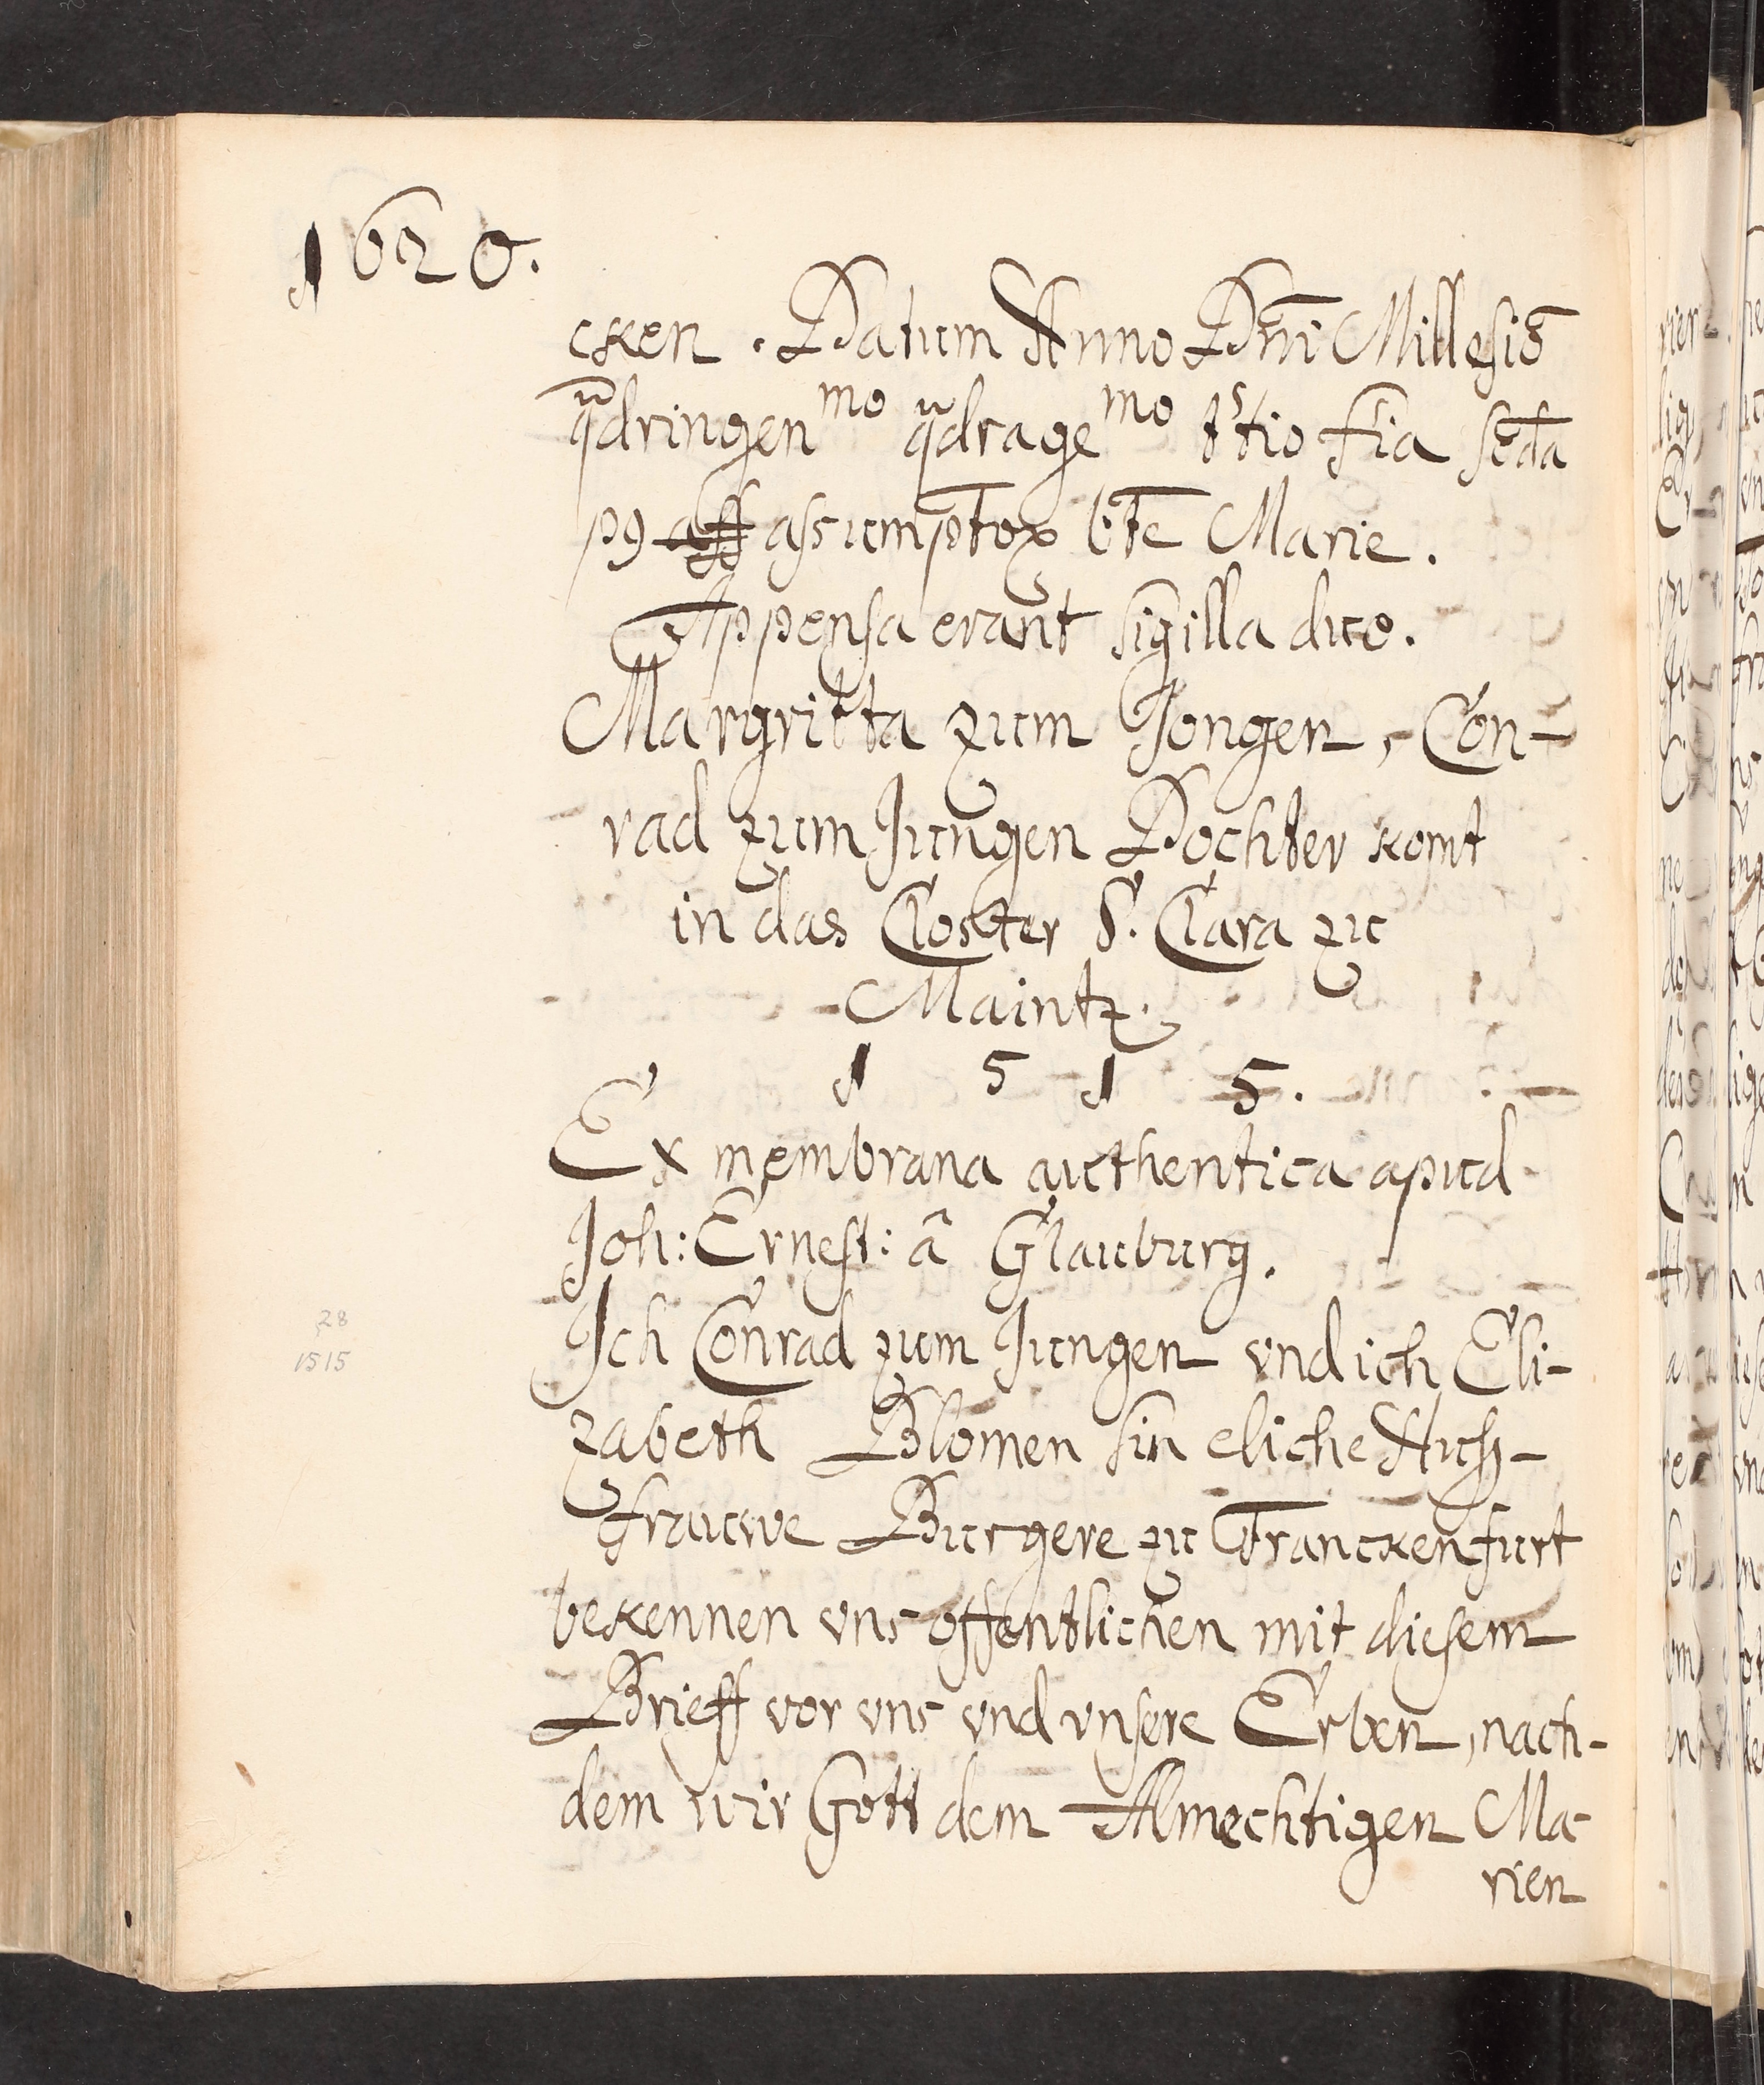 1620.
cken. Datum Anno Dnī Millesiō
qᵘ̄dringenᵐᵒ qᵘdrageᵐᵒ ttio fia scda
pꝰ aff assumptoꝝ bte Marie.
Appensa erant sigilla duo.
Margritta zum Jongen, Con-
rad zum Jungen Dochter komt
in das Closter S. Clara zu
Maintz.
1 5 1 5.
Ex membrana authentica apud
Joh: Ernest: â Glauburg.
28
1515
Ich Conrad zum Jungen vnd ich Eli-
zabeth Blomen sin eliche Huß-
frauwe Burgere zu Franckenfurt
bekennen vns offentlichen mit diesem
Brieff vor vns vnd vnsere Erben, nach-
dem wir Gott dem Almechtigen Ma-
rien